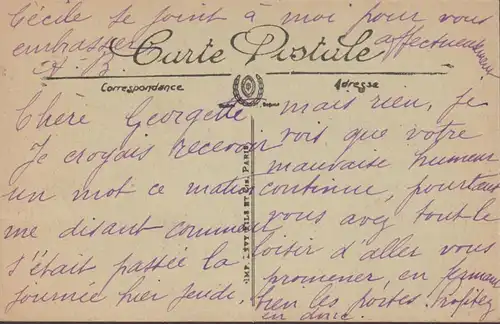 Cécile se joint à moi pour vous
embrasser affectueusement
A. B.
Carte Postale
Correspondance
Adresse
Chère Georgette
Je croyais recevoir
un mot ce matin
me disant comment
s'était passée la
journée hier jeudi.
mais rien, je
vois que votre
mauvaise humeur
continue, pourtant
vous avez tout le
loisir d'aller vous
promener, en fermant
bien les portes. Profitez
en donc.
IMP. LÉVY FILS ET Cie, PARIS